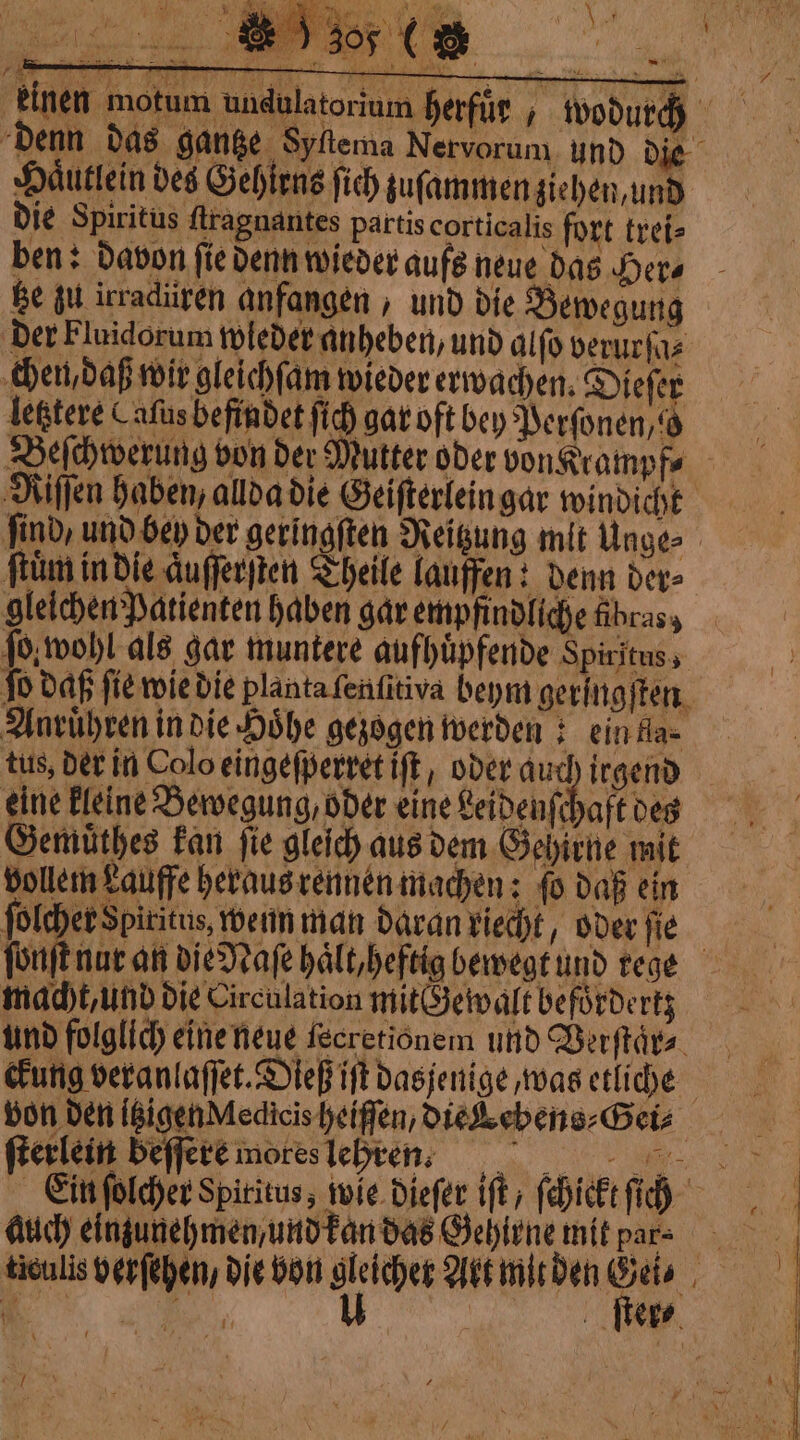 ) 305 (
einen motum undulatorium herfuͤr / wodurch
denn das gantze Syſtema Nervorum und die
Haͤutlein des Gehirns ſich zuſammen ziehen, und
die Spiritus ſtragnantes partis corticalis fort trei⸗
ben: davon ſie denn wieder aufs neue das Her⸗
tze zu irradiiren anfangen / und die Bewegung
der Fluidorum wieder anheben, und alſo verurſa⸗
chen, daß wir gleichſam wieder erwachen. Dieſer
letztere Caſus befindet ſich gar oft bey Perſonen, ſo
Beſchwerung von der Mutter oder von Krampf⸗
Riſſen haben, allda die Geiſterlein gar windicht
ſind, und bey der geringſten Reitzung mit Unge⸗
ſtuͤm in die aͤuſſerſten Theile lauffen: denn der⸗
gleichen Patienten haben gar empfindliche fibras,
ſo wohl als gar muntere aufhuͤpfende Spiritus,
ſo daß ſie wie die planta ſenſitiva beym geringſten
Anruͤhren in die Hoͤhe gezogen werden: ein fla-
tus, der in Colo eingeſperret iſt, oder auch irgend
eine kleine Bewegung, oder eine Leidenſchaft des
Gemuͤthes kan ſie gleich aus dem Gehirne mit
vollem Lauffe heraus rennen machen: ſo daß ein
ſolcher Spiritus, wenn man daran riecht, oder ſie
ſonſt nur an die Naſe haͤlt, heftig bewegt und rege
macht, und die Circulation mit Gewalt befoͤrdert;
und folglich eine neue ſecretionem und Verſtaͤr⸗
ckung veranlaſſet. Dieß iſt dasjenige, was etliche
von den itzigen Medicis heiſſen, die Lebens⸗Gei⸗
ſterlein beſſere mores lehren.
Ein ſolcher Spiritus, wie dieſer iſt, ſchickt ſich
auch einzunehmen, und kan das Gehirne mit par-
ticulis verſehen, die von gleicher Art mit den Gei⸗
U ſter⸗